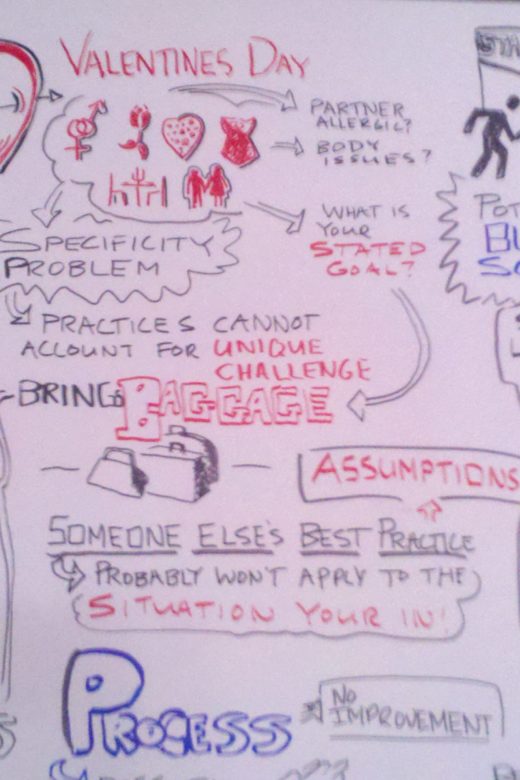 VALENTINES DAY
PARTNER
ALLERGIC?
BODY
ISSUES?
WHAT IS
YOUR
STATED
GOAL?
SPECIFICITY
PROBLEM
PRACTICES CANNOT
ACCOUNT FOR UNIQUE
CHALLENGE
BRING BAGGAGE
ASSUMPTIONS
SOMEONE ELSE'S BEST PRACTICE
PROBABLY WON'T APPLY TO THE
SITUATION YOUR IN!
PROCESS
NO
IMPROVEMENT